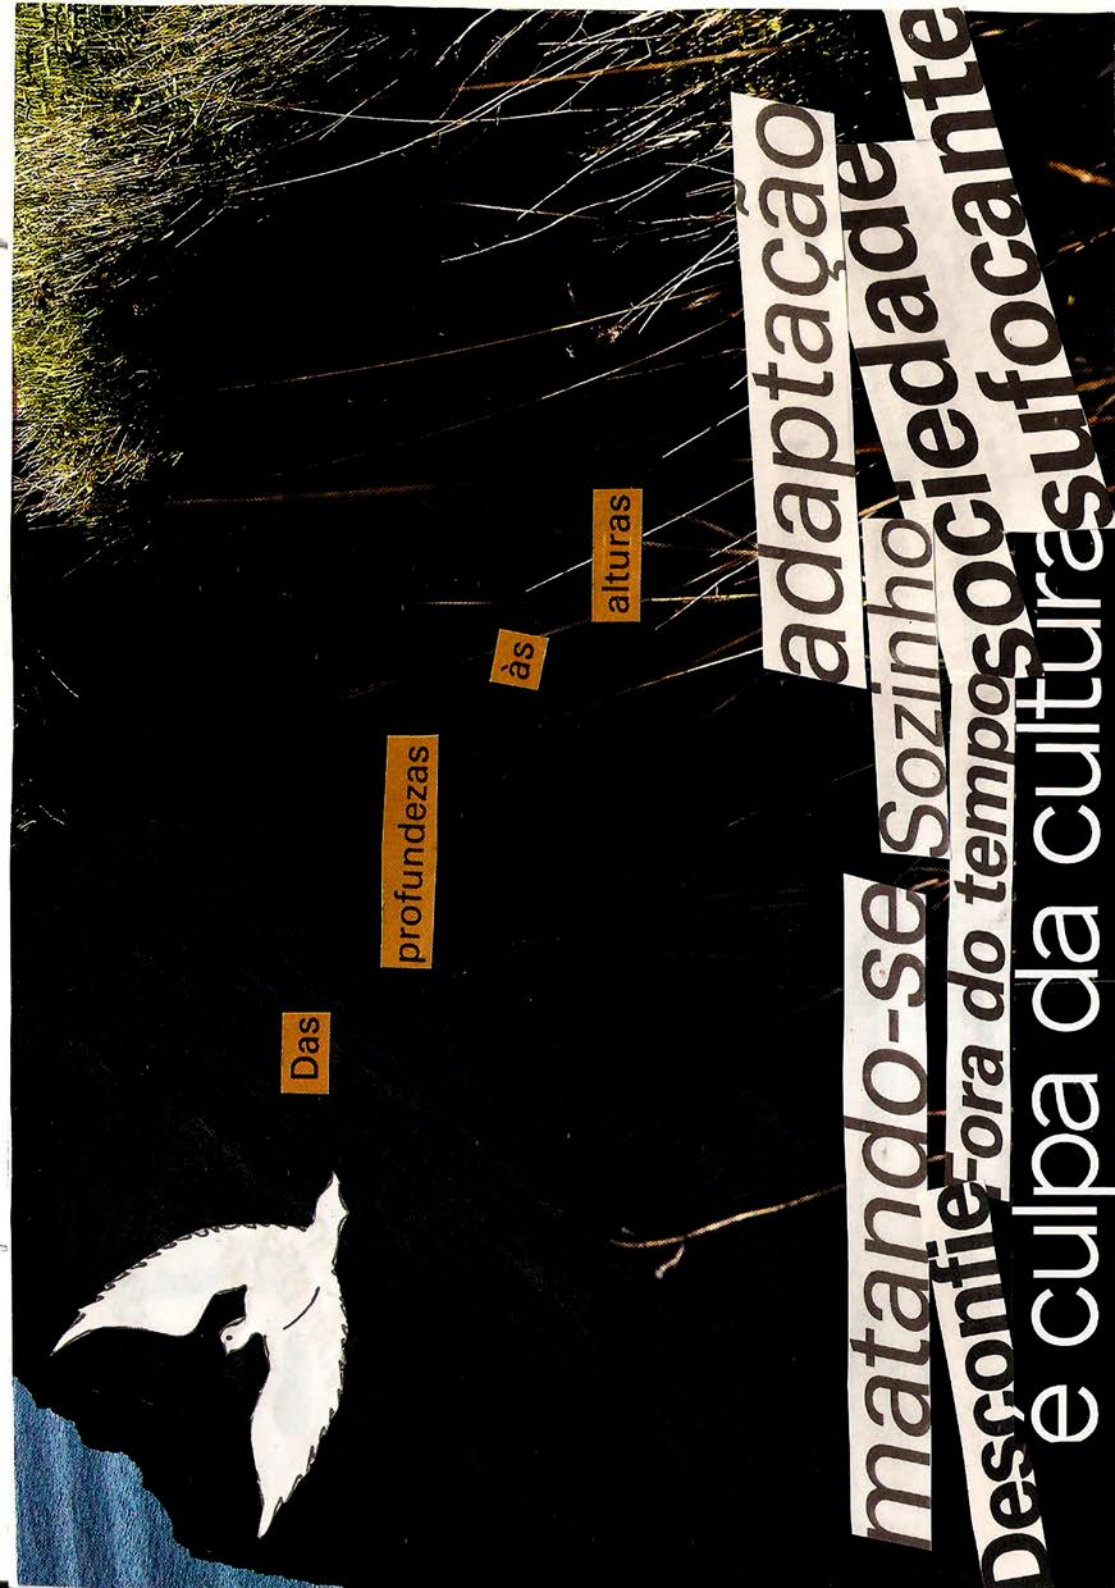 Das
profundezas
às
alturas
adaptação
matando-se Sozinho sociedade
Desconfie Fora do tempo sufocante
é culpa da cultura